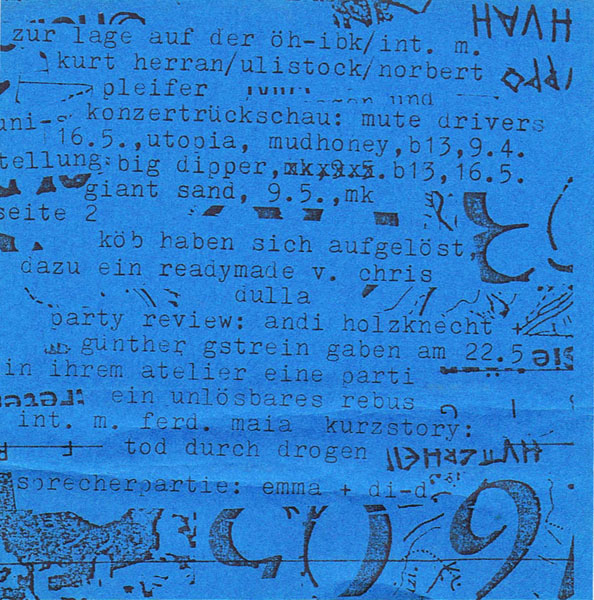 zur lage auf der öh-ibk/int. m.
kurt herran/ulistock/norbert
pleifer
und
konzertrückschau: mute drivers
16.5.,utopia, mudhoney,b13,9.4.
tellung: big dipper, b13,16.5.
giant sand, 9.5.,mk
seite 2
köb haben sich aufgelöst,
dazu ein readymade v. chris
dulla
party review: andi holzknecht +
günther gstrein gaben am 22.5
in ihrem atelier eine parti
ein unlösbares rebus
int. m. ferd. maia kurzstory:
tod durch drogen
sprecherpartie: emma + di-d